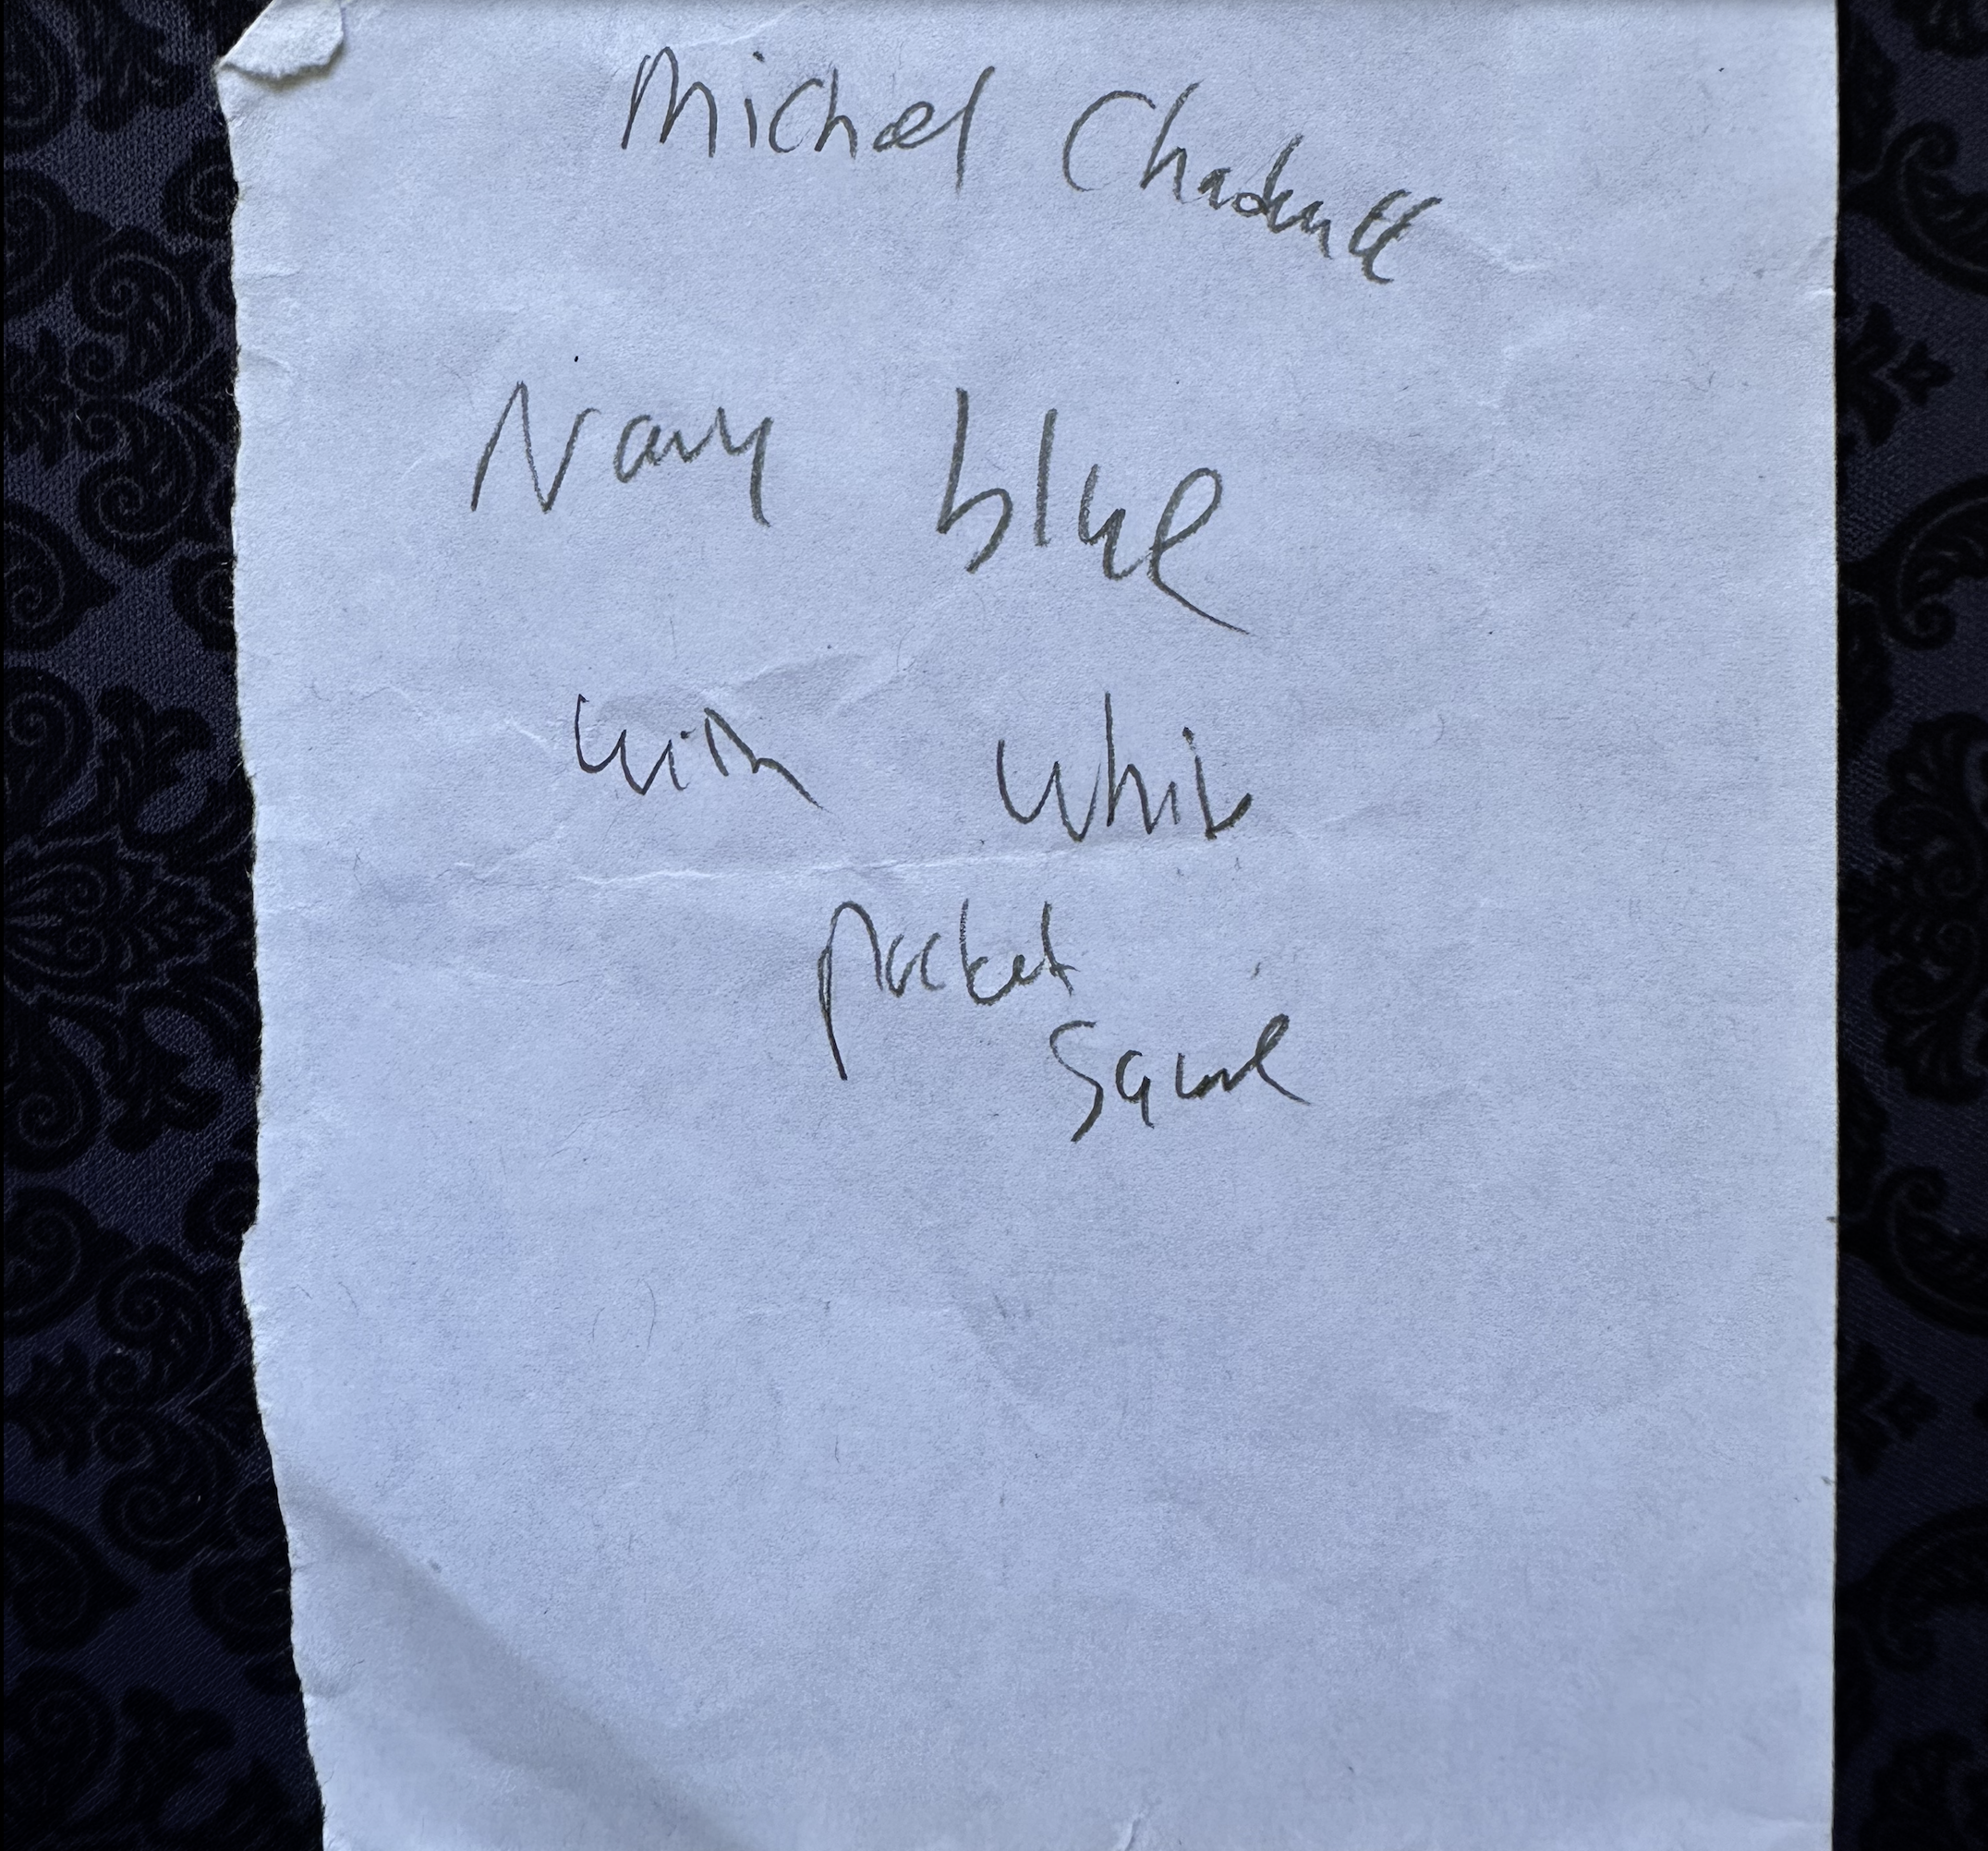 Michael
Navy blue
with white
pocket
square